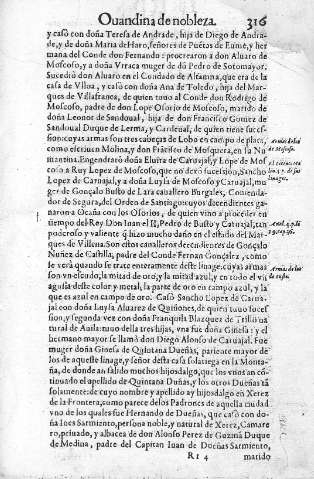 Ouandina de nobleza. 316
y casò con doña Teresa de Andrade, hija de Diego de Andra-
de, y de doña Maria de Haro, señores de Puẽtes de Eume, y her
mana del Conde don Fernando: procrearon a don Aluaro de
Moscoso, y a doña Vrraca muger de dõ Pedro de Sotomayor.
Sucedió don Aluaro en el Condado de Altamira, que era de la
casa de Vlloa, y casó con doña Ana de Toledo, hija del Mar-
ques de Villafranca, de quien tuuo al Conde don Rodrigo de
Moscoso, padre de don Lope Osorio de Moscoso, marido de
doña Leonor de Sandoual, hija de don Francisco Gomez de
Sandoual Duque de Lerma, y Cardenal, de quien tiene suces-
sion: cuyas armas son tres cabeças de Lobo en campo de plata,
como escriuen Molina, y don Frãcisco de Mosquera, en su Nu
mantina. Engendrarõ doña Eluira de Caruajal, y Lope de Mos
coso a Ruy Lopez de Moscoso, que no dexò sucession, Sancho
Lopez de Caruajal, y a doña Luysa de Moscoso y Caruajal, mu
ger de Gonçalo Busto de Lara cauallero Burgales, Comenda-
dor de Segura, del Orden de Santiago: cuyos decendientes ga-
naron a Ocaña con los Osorios, de quien vino a proceder en
tiempo del Rey Don Iuan el II, Pedro de Busto y Caruajal, tan
poderoso y valiente que hizo mucho daño en el estado del Mar
ques de Villena. Son estos caualleros decendientes de Gonçalo
Nuñez de Castilla, padre del Conde Fernan Gonçalez, como
se verà quando se trate enteramente deste linage: cuyas armas
son un escudo, la mitad de oro, y la mitad azul, y en todo el vn
aguila deste color y metal, la parte de oro en campo azul, y la
que es azul en campo de oro. Casò Sancho Lopez de Carua-
jal con doña Luysa Aluarez de Quiñones, de quien tuuo suces-
sion, y segunda vez con doña Franquila Blazquez de Trillo na
tural de Auila: tuuo della tres hijas, vna fue doña Ginesa: y el
hermano mayor se llamò don Diego Alonso de Caruajal. Fue
muger doña Ginesa de Quintana Dueñas, pariente mayor de
los de aqueste linage, y señor desta casa solariega en la Monta-
ña, de donde an salido muchos hijosdalgo, que los vnos an cõ-
tinuado el apellido de Quintana Duñas, y los otros Dueñas tã
solamente: de cuyo nombre y apellido ay hijosdalgo en Xerez
de la Frontera, como parece de los Padrones de aquella ciudad
vno de los quales fue Hernando de Dueñas, que casò con do-
ña Ines Sarmiento, persona noble, y natural de Xerez, Camare
ro, priuado, y albacea de don Alonso Perez de Guzmã Duque
de Medina, padre del Capitan Iuan de Dueñas Sarmiento,
Rr 4 marido